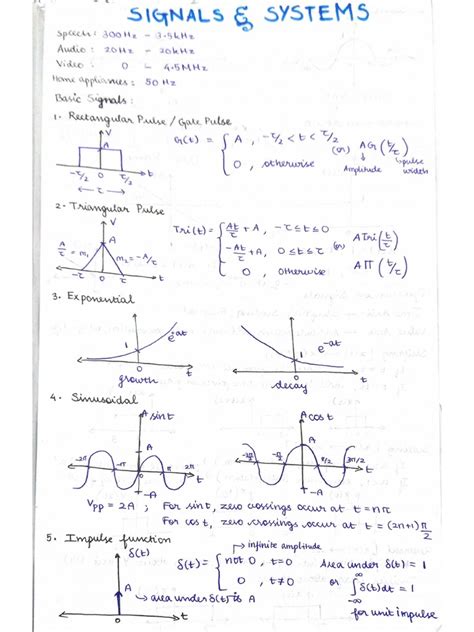 SIGNALS & SYSTEMS
Speech: 300Hz - 3.5kHz
Audio: 20Hz - 20kHz
Video: 0 - 4.5MHz
Home appliances: 50Hz
Basic Signals:
1. Rectangular Pulse / Gate Pulse
V
A
-τ/2 0 τ/2 t
← τ →
G(t) = { A, -τ/2 < t < τ/2
0, otherwise
(or) AG(t/τ)
Amplitude
pulse width
2. Triangular Pulse
V
A
A/τ = m₁
m₂ = -A/τ
-τ 0 τ t
Tri(t) = { At/τ + A, -τ ≤ t ≤ 0
-At/τ + A, 0 ≤ t ≤ τ
0, otherwise
(or) ATri(t/τ)
AΠ(t/τ)
3. Exponential
1
0
t
growth
e^-at
1
0
t
decay
4. Sinusoidal
A sint
A
-2π -π 0 π 2π t
-A
A cost
A
-π/2 0 π/2 3π/2 t
-A
Vpp = 2A ; For sint, zero crossings occur at t = nπ
For cost, zero crossings occur at t = (2n+1)π/2
5. Impulse function
δ(t)
A
0
t
area under δ(t) is A
infinite amplitude
δ(t) = { not 0, t=0
0, t≠0
Area under δ(t) = 1
or ∫ δ(t)dt = 1
∞
-∞
for unit impulse